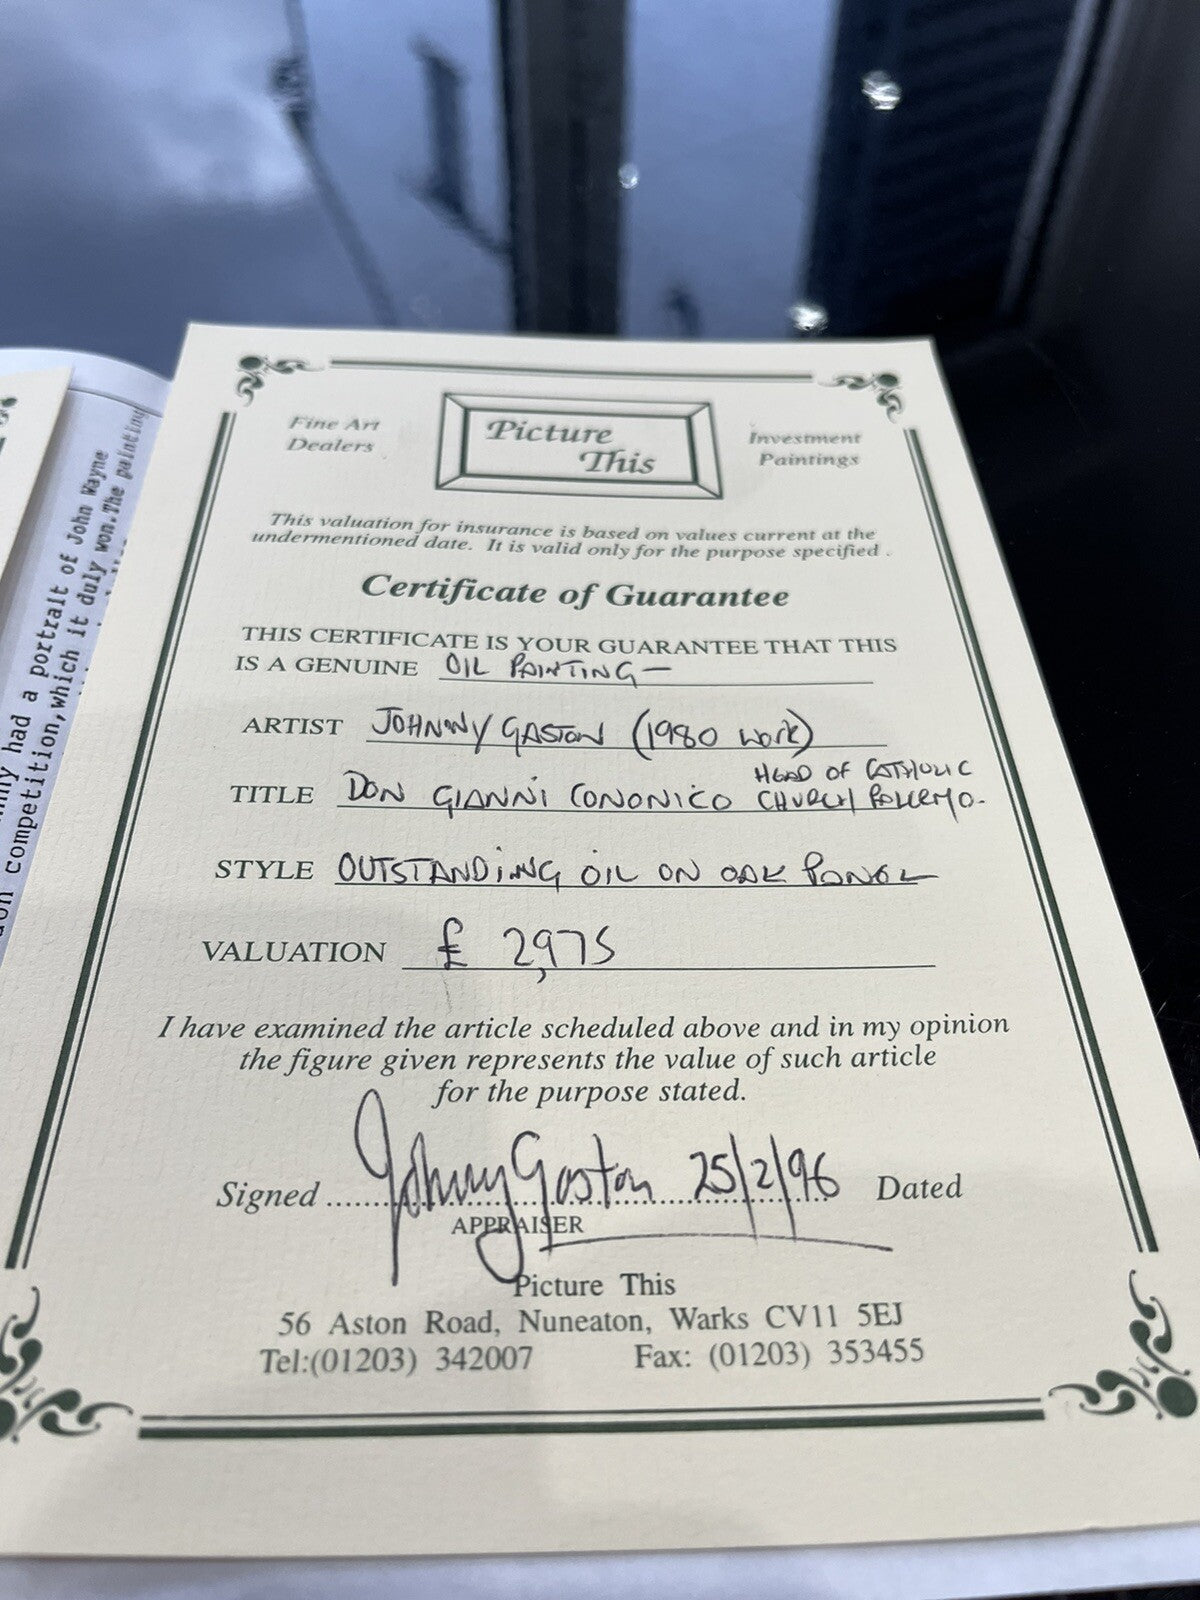 portrait of John Wayne
had a
competition, which it duly won. The painting
Fine Art
Dealers
Picture
This
Investment
Paintings
This valuation for insurance is based on values current at the
undermentioned date. It is valid only for the purpose specified.
Certificate of Guarantee
THIS CERTIFICATE IS YOUR GUARANTEE THAT THIS
IS A GENUINE OIL PAINTING —
ARTIST JOHNNY GASTON (1980 WORK)
HEAD OF CATHOLIC
TITLE DON GIANNI CONONICO CHURCH PALERMO.
STYLE OUTSTANDING OIL ON OAK PANEL
VALUATION £ 2,975
I have examined the article scheduled above and in my opinion
the figure given represents the value of such article
for the purpose stated.
Signed Johnny Gaston 25/2/96 Dated
APPRAISER
Picture This
56 Aston Road, Nuneaton, Warks CV11 5EJ
Tel:(01203) 342007 Fax: (01203) 353455